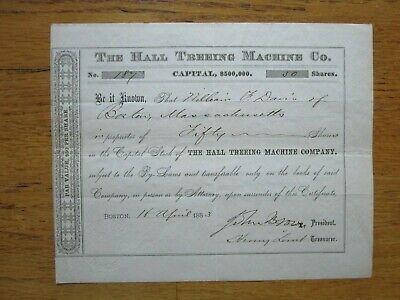 THE HALL TREEING MACHINE CO.
No. 189 CAPITAL, $500,000. 50 Shares.
Be it Known, That William F. Davis of
Boston, Massachusetts
is proprietor of Fifty Shares
in the Capital Stock of THE HALL TREEING MACHINE COMPANY,
subject to the By-Laws and transferable only on the books of said
Company, in person or by Attorney, upon surrender of this Certificate.
BOSTON, 16 April 1883
President.
Treasurer.
PAR VALUE, $25 PER SHARE.